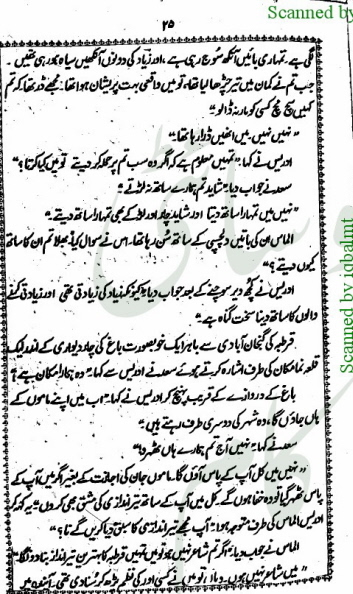 Scanned by
۲۵
لگی ہے۔ تمہاری بائیں آنکھ سوج رہی ہے، اور زیاد کی دونوں آنکھیں سیاہ ہو رہی تھیں۔
جب تم نے کمان میں تیر چڑھا لیا تھا، تو میں واقعی بہت پریشان ہوا تھا۔ مجھے ڈر تھا کہ تم
کہیں سچ مچ کسی کو مار نہ ڈالو"
"نہیں نہیں۔ میں انہیں ڈرا رہا تھا۔"
ادریس نے کہا "تمہیں معلوم ہے کہ اگر وہ سب تم پر حملہ کر دیتے تو میں کیا کرتا؟"
سعد نے جواب دیا "شاید تم ہمارے ساتھ نہ لڑتے"
"نہیں میں تمہارا ساتھ دیتا اور شاید چار اور لڑکے بھی تمہارا ساتھ دیتے۔"
الماس ان کی باتیں دلچسپی کے ساتھ سن رہا تھا۔ اس نے سوال کیا "بھلا تم ان کا ساتھ
کیوں دیتے؟"
ادریس نے کچھ دیر سوچنے کے بعد جواب دیا "کیونکہ زیاد کی زیادتی تھی اور زیادتی کرنے
والوں کا ساتھ دینا سخت گناہ ہے"
قرطبہ کی گنجان آبادی سے باہر ایک خوبصورت باغ کی چار دیواری کے اندر ایک
قلعہ نما مکان کی طرف اشارہ کرتے ہوئے سعد نے ادریس سے کہا "وہ ہمارا مکان ہے"
باغ کے دروازے کے قریب پہنچ کر ادریس نے کہا "اب میں اپنے ماموں کے
ہاں جاؤں گا۔ وہ شہر کی دوسری طرف رہتے ہیں"
سعد نے کہا "نہیں آج تم ہمارے ہاں ٹھہرو"
"نہیں میں کل آپ کے پاس آؤں گا۔ ماموں جان کی اجازت کے بغیر اگر میں آپ کے
پاس ٹھہر گیا تو وہ خفا ہوں گے۔ کل میں آپ کے ساتھ تیر اندازی کی مشق بھی کروں گا" یہ کہہ کر
ادریس الماس کی طرف متوجہ ہوا "آپ مجھے تیر اندازی کا سبق دیا کریں گے نا؟"
الماس نے جواب دیا "اگر تم شاعر نہیں ہو تو میں تمہیں قرطبہ کا بہترین تیر انداز بنا دوں گا"
"میں شاعر نہیں ہوں۔ وہاں میں نے کسی اور کی نظم پڑھ کر سنا دی تھی۔ آئندہ میں
Scanned by iqbalmt